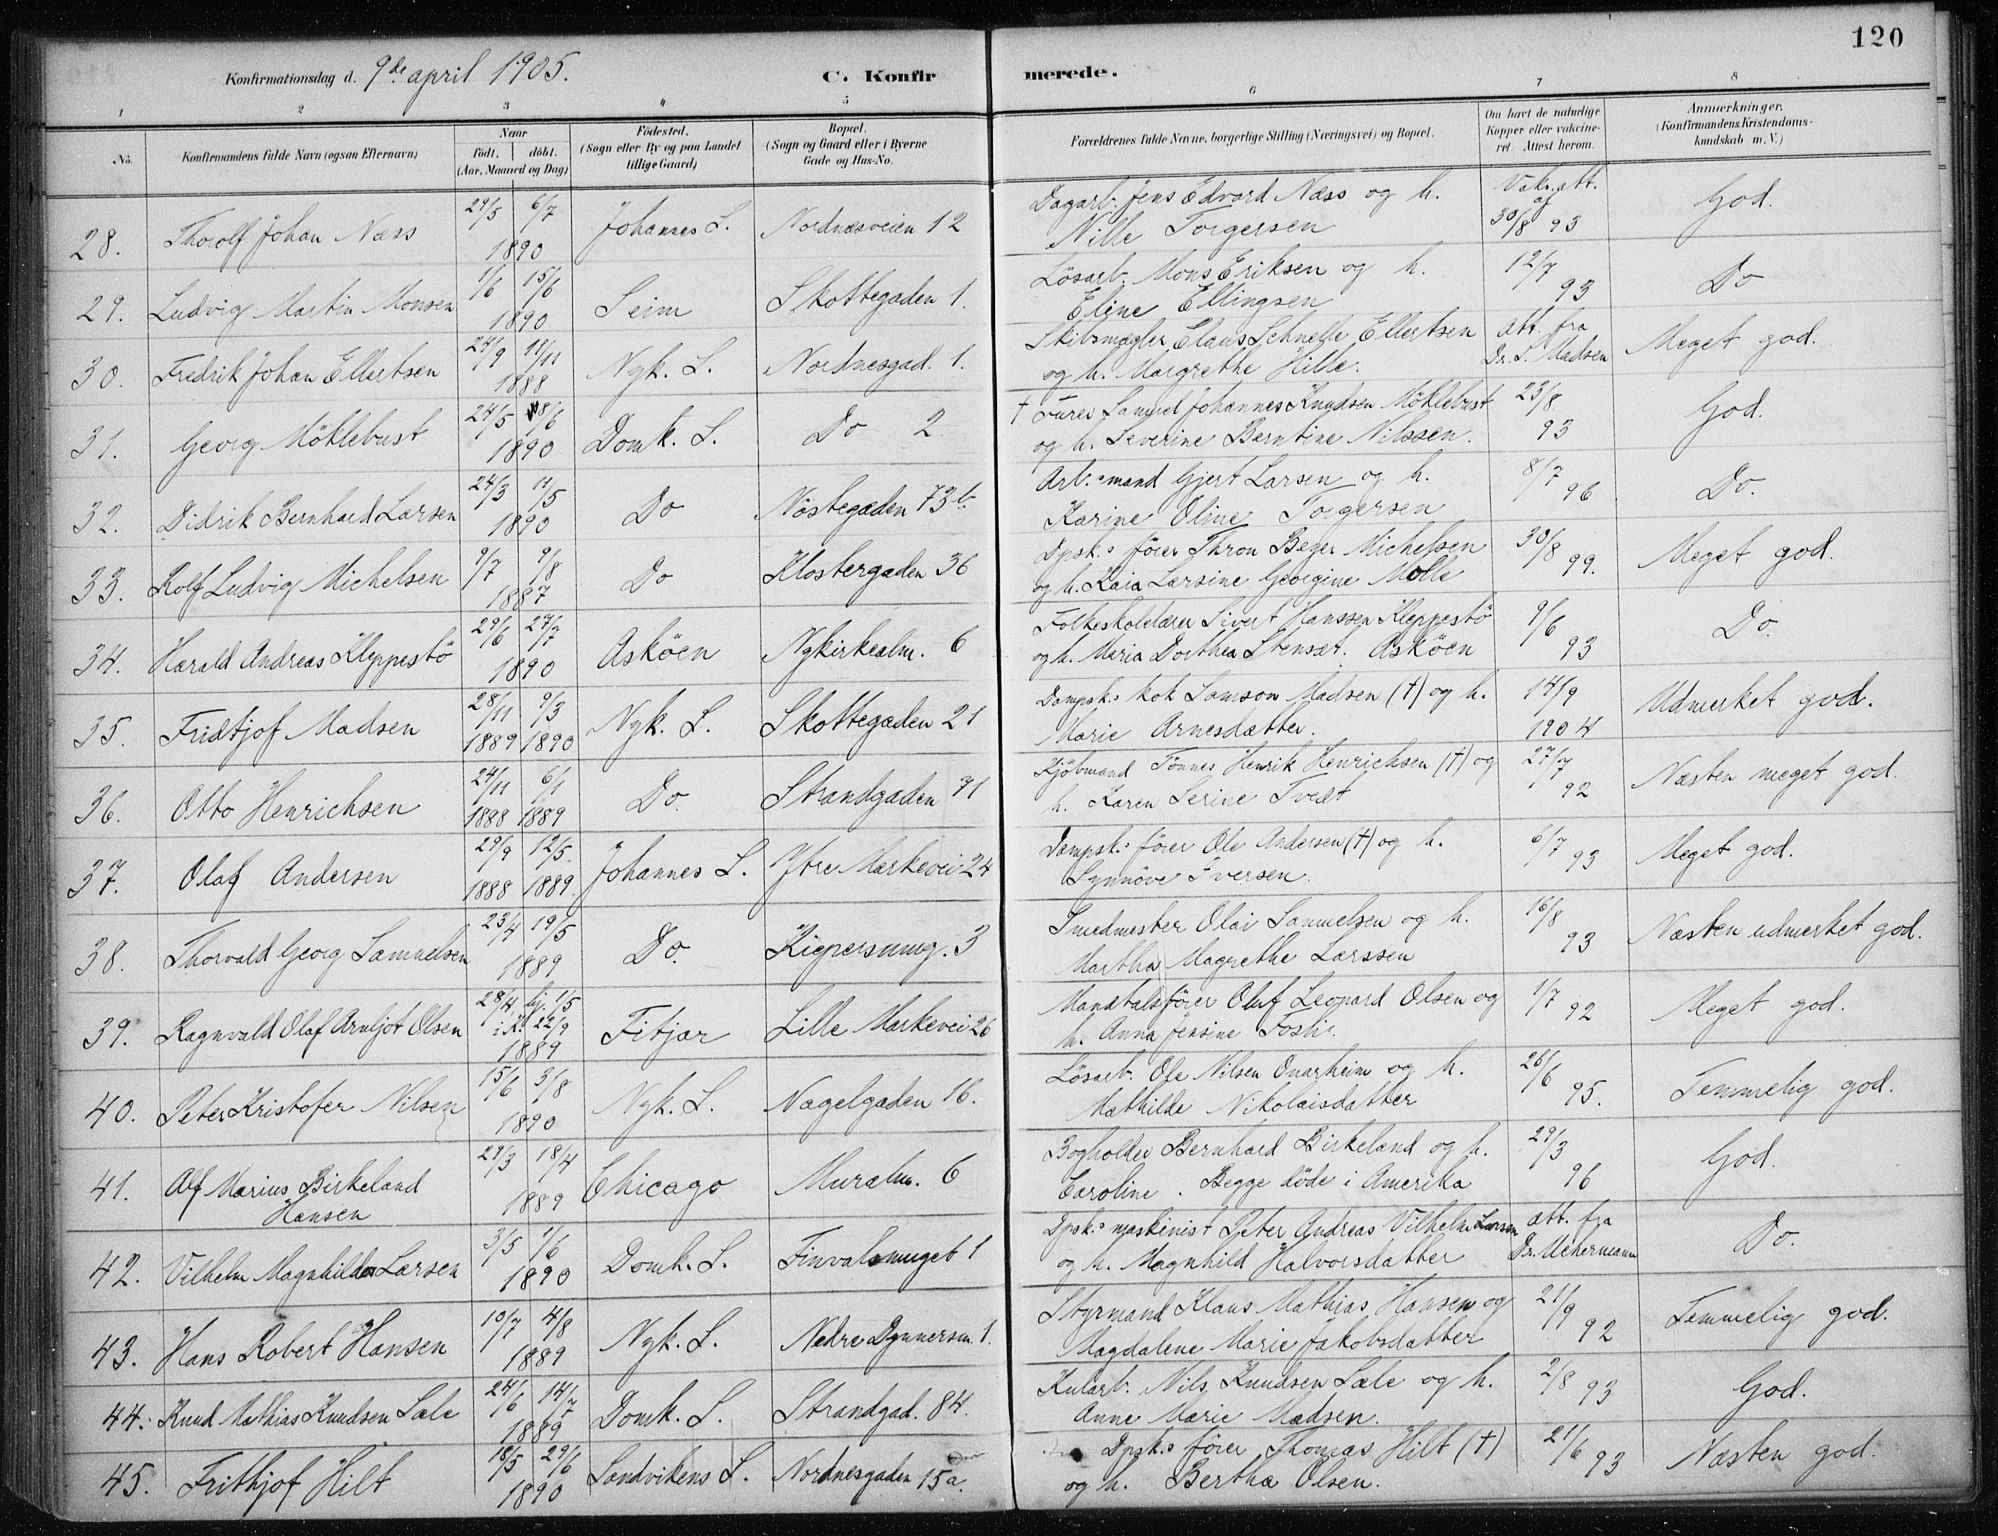 120
Konfirmationsdag d. 9de april 1905. C. Konfirmerede.
1 2 3 4 5 6 7 8
No. Konfirmandens fulde Navn (ogsaa Efternavn) Naar født. døbt. (Aar, Maaned og Dag) Fødested. (Sogn eller By og paa Landet tillige Gaard) Bopæl. (Sogn og Gaard eller i Byerne Gade og Hus-No. Forældrenes fulde Navne, borgerlige Stilling (Næringsvei) og Bopæl. Om havt de naturlige Kopper eller vaccineret. Attest herom. Anmærkninger. (Konfirmandens Kristendomskundskab m. V.)
28. Thorolf Johan Næss 29/5 6/7 1890 Johannes S. Nordnæsveien 12 Dagarb. Jens Edvard Næss og h. Nille Torgersen Vak. att. af 30/8 93 God.
29. Ludvig Martin Monsen 1/6 15/6 1890 Seim Skottegaden 1. Lösarb. Mons Eriksen og h. Eline Ellingsen 12/7 93 Do
30. Fredrik Johan Ellertsen 24/9 11/11 1888 Nyk. S. Nordnesgad. 1. Skibsmægler Claus Schnelle Ellertsen og h. Margrethe Hille. Att. fra Dr. S. Madsen Meget god.
31. Georg Möklebust 24/5 8/6 1890 Domk. S. Do 2 † Fürer Samuel Johannes Knudsen Möklebust og h. Severine Berntine Nilssen. 23/8 93 God.
32. Didrik Bernhard Larsen 24/3 11/5 1890 Do Nöstegaden 73b. Arb.mand Gjert Larsen og h. Karine Oline Torgersen 8/7 96 Do.
33. Rolf Ludvig Michelsen 9/7 9/8 1887 Do Klostergaden 36 Dpsk.s förer Thron Beger Michelsen og h. Kaia Larsine Georgine Molle 30/8 99. Meget god.
34. Harald Andreas Kleppestö 29/6 27/7 1890 Asköen Nykirkealm. 6 Folkeskolelærer Sivert Hanssen Kleppestö og h. Maria Dorthea Stensæt. Asköen 9/6 93 Do.
35. Fridtjof Madsen 28/11 1889 9/3 1890 Nyk. S. Skottegaden 21 Dampsk.s kok Samson Madsen (†) og h. Marie Arnesdatter. 14/9 1904 Udmerket god.
36. Otto Henrichsen 24/11 1888 6/1 1889 Do. Strandgaden 71 Kjöbmand Tönnes Henrik Henrichsen (†) og h. Karen Serine Tvedt 27/7 92 Næsten meget god.
37. Olaf Andersen 29/9 1888 12/5. 1889. Johannes S. Ytre Markevei 24 Dampsk.s förer Ole Andersen (†) og h. Synnöve Iversen. 6/7 93 Meget god.
38. Thorvald Georg Samuelsen 23/4 19/5 1889 Do. Kiepersmug. 3 Smedmester Olai Samuelsen og h. Martha Magrethe Larssen 16/8 93 Næsten udmerket god.
39. Ragnvald Olaf Arnljot Olsen 28/4 hj. 1/5 i K. 22/9 1889 Fitjar Lille Markevei 26 Mandtalsförer Oluf Leonard Olsen og h. Anna Jensine Toshi. 1/7 92 Meget god.
40. Peter Kristofer Nilsen 15/6 3/8 1890 Nyk. S. Nagelgaden 16. Lösarb. Ole Nilsen Onarheim og h. Mathilde Nikolaisdatter 26/6 95. Temmelig god.
41. Alf Marius Birkeland Hansen 29/3 18/4 1889 Chicago Muralm. 6 Bogholder Bernhard Birkeland og h. Caroline. Begge döde i Amerika 29/3 96 God.
42. Vilhelm Magnhildor Larsen 3/5 1/6 1890 Domk. S. Finvalsmuget 1 Dpsk.s maskinist Peter Andreas Vilhelm Larsen og h. Magnhild Halvorsdatter Att. fra Dr. Uchermann Do.
43. Hans Robert Hansen 10/7 4/8 1889 Nyk. S. Nedre Dynnersm 1. Styrmand Klaus Mathias Hansen og Magdalene Marie Jakobsdatter 21/9 92 Temmelig god.
44. Knud Mathias Knudsen Sale 24/6 14/7 1889 Domk. S. Strandgad. 84. Kularb. Nils Knudsen Sale og h. Anne Marie Madsen. 2/8 93 God.
45. Frithjof Hilt 18/5 29/6 1890 Sandvikens S. Nordnesgaden 15a. Dpsk.s förer Thomas Hilt (†) og h. Bertha Olsen. 21/6 93 Næsten god.